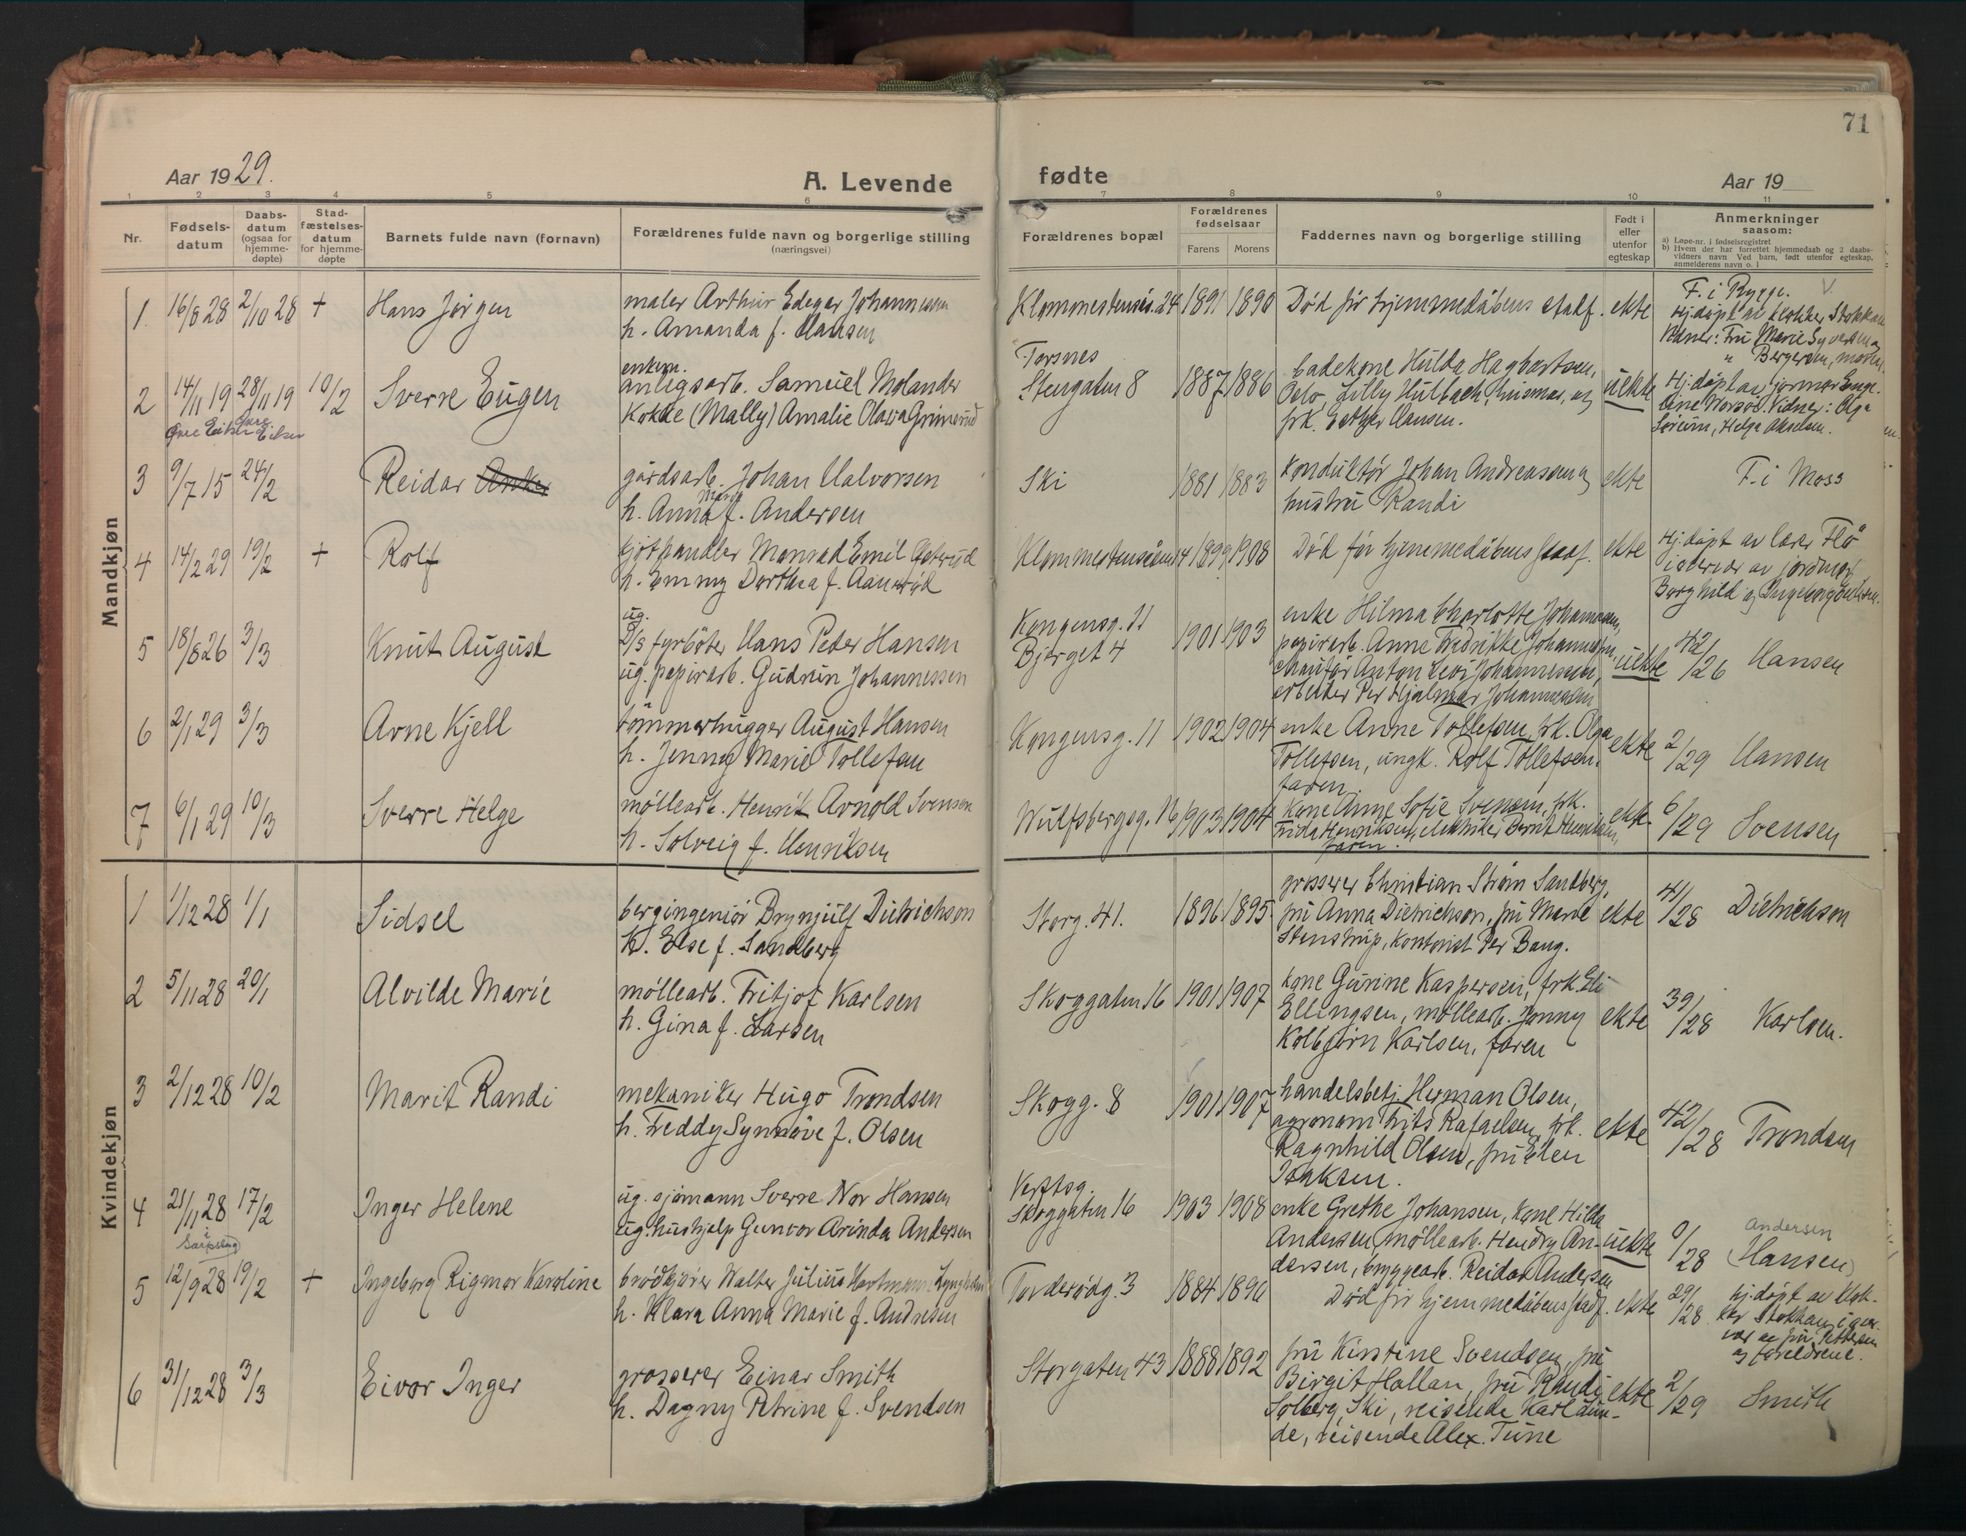 71
Aar 1929.
A. Levende
fødte
Aar 19
1 2 3 4 5 6 7 8 9 10 11
Nr.
Fødsels-
datum
Daabs-
datum
(ogsaa for
hjemme-
døpte)
Stad-
fæstelses-
datum
for hjemme-
døpte
Barnets fulde navn (fornavn)
Forældrenes fulde navn og borgerlige stilling
(næringsvei)
Forældrenes bopæl
Forældrenes
fødselsaar
Farens Morens
Faddernes navn og borgerlige stilling
Født i
eller
utenfor
egteskap
Anmerkninger
saasom:
a) Løpe-nr. i fødselsregistret
b) Hvem der har forrettet hjemmedaab og 2 daabs-
vidners navn. Ved barn, født utenfor egteskap,
anmelderens navn o. l.
Mandkjøn
1. 16/8 28 2/10 28 + Hans Jørgen
maler Arthur Edgar Johannessen
h. Amanda f. Hansen
24 1891 1890 Død før hjemmedåbens stadf. ekte
F. i Rygge.
Hj.døpt av klokker Stokkan
Vidner: Fru Marie Syversen og
" Bergersen, 
2 14/11 19 28/11 19 10/2 Sverre Eugen
Øvre Eiker Øvre Eiker
enkem.
anlegsarb. Samuel Molander
Kokke (Mally) Amalie Olava Grimsrud
Torsnes
Stengaten 8 1887 1886
badekone Hulda Hagbartsen,
Oslo, Lilly Hulbach, husmor, og
frk. Esther Hansen.
uekte
Hj.døpt av jormor Enge-
line Norsol. Vidner: Olga
Soreim, Helga Akselsen.
3 9/7 15 24/2 Reidar Anker
gårdsarb. Johan Halvorsen
h. Anna Marie f. Andersen
Ski 1881 1883
Konduktør Johan Andreassen og
hustru Randi
ekte F. i Moss
4 14/2 29 19/2 + Rolf
kjøthandler Monrad Emil Østerud
h. Emmy Dorthea f. Aanerød
1899 1908 Død før hjemmedåbens stadf. ekte
Hj.døpt av lærer Flø
i nærvær av jordmor
Borghild og Ingeborg
5 18/8 26 3/3 Knut August
ug.
D/s fyrbøter Hans Peder Hansen
ug. papirarb. Gudrun Johannessen
Kongensg. 11
Bjerget 4 1901 1903
enke Hilma Charlotte Johannessen,
papirarb. Anne Fredrikke Johannessen,
Anton Levi Johannessen,
arbeider Per Hjalmar Johannessen
uekte 42/26 Hansen
6 2/1 29 3/3 Arne Kjell
tømmerhugger August Hansen
h. Jenny Marie Tollefsen
Kongensg. 11 1902 1904
enke Anne Tollefsen, frk. Olga
Tollefsen, ungk. Rolf Tollefsen.
faren.
ekte 2/29 Hansen
7 6/1 29 10/3 Sverre Helge
møllearb. Henrik Arnold Svensen
h. Solveig f. Henriksen
Wulfsbergsg. 16 1903 1904
kone Anne Sofie Svensen, frk.
Frida Henriksen, elektriker Bernt Henriksen,
faren.
ekte. 6/29 Svensen
Kvindekjøn
1 1/12 28 1/1 Sidsel
bergingeniør Brynjulf Dietrichson
h. Else f. Sandberg
Storg. 41. 1896 1895
grosserer Christian Strøm Sandberg,
fru Anna Dietrichson, fru Marie
Stenstrup, kontorist Per Bang.
ekte 41/28 Dietrichson
2 5/11 28 20/1 Alvilde Marie
møllearb. Fritjof Karlsen
h. Gina f. Larsen
Skoggaten 16 1901 1907
kone Gurine Kaspersen, frk. Eli
Ellingsen, møllearb. Jonny
Kolbjørn Karlsen, faren
ekte 39/28 Karlsen.
3 2/12 28 10/2 Marit Randi
mekaniker Hugo Trondsen
h. Freddy Synnøve f. Olsen
Skogg. 8 1901 1907
handelsbetj. Herman Olsen,
agronom Frits Rafaelsen, frk.
Ragnhild Olsen, fru Ellen
Isaksen.
ekte 42/28 Trondsen
4 21/11 28 17/2 Inger Helene
i Sarpsborg
ug. sjømann Sverre Nor Hansen
ug. hushjelp Gunvor Arinda Andersen
Verftsg.
Skoggaten 16 1903 1908
enke Grethe Johansen, kone Hilda
Andersen, møllearb. Hendry An-
dersen, bryggearb. Reidar Andersen
uekte 0/28 Andersen
(Hansen)
5 12/9 28 19/2 + Ingeborg Rigmor Karoline
brødkjører Walter Julius Hartmann
h. Klara Anna Marie f. Andresen
Torderødg. 3 1884 1896
Død før hjemmedåbens stadf. ekte
29/28 hj.døpt av klok-
ker Stokkan i nær-
vær av fru Pettersen
og foreldrene.
6 31/12 28 3/3 Eivor Inger
grosserer Einar Smith
h. Dagny Petrine f. Svendsen
Storgaten 43 1888 1892
fru Kirstine Svendsen, fru
Birgit Hallan, fru Randi
Solberg, Ski, reisende Karl Lun-
de, reisende Alex. Tune
ekte 2/29 Smith